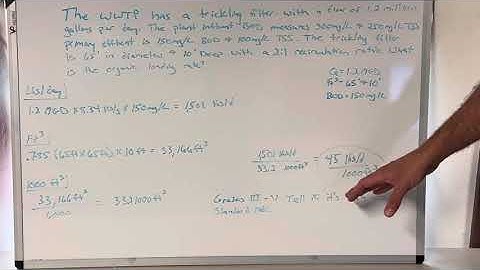 The WWTP has a trickling filter with a flow of 1.2 million
gallons per day. The plant influent BOD measures 300mg/L & 250mg/L TSS
Primary effluent is 150mg/L BOD & 100mg/L TSS. The trickling filter
is 65' in diameter & 10' Deep with a 2:1 recirculation ratio. What
is the organic loading rate?
Q = 1.2 MGD
Ft³ - 65' + 10'
BOD = 150mg/L
lbs/day
1.2 MGD x 8.34 lb/g x 150mg/L = 1,501 lbs/d
Ft³
.785 (65ft x 65ft) x 10ft = 33,166 ft³
1501 lbs/d
33.2 1000ft³
= 45 lbs/d
1000ft³
1000 ft³
33,166 ft³
1,000
= 33.2 1000ft³
Grades III - V Tell if it's
Standard